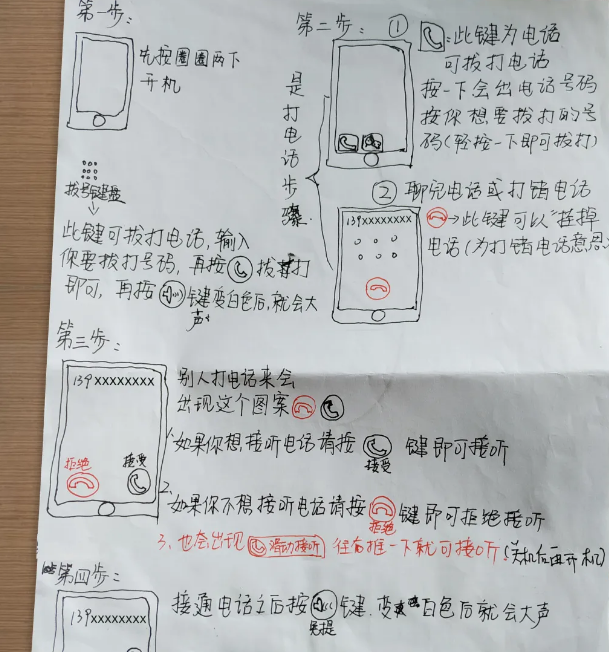 第一步：
先按圈圈两下
开机
拨号键盘
此键可拔打电话，输入
你要拔打号码，再按拔打
即可，再按键变白色后，就会大
声
第二步：①
是打电话步骤.
：此键为电话
可拔打电话
按一下会出电话号码
按你想要拔打的号
码（轻按一下即可拔打）
② 聊完电话或打错电话
139xxxxxxxx
→此键可以“挂掉
电话（为打错电话意思
第三步：
139xxxxxxxx
拒绝
接受
别人打电话来会
出现这个图案
1、如果你想接听电话请按键即可接听
接受
2、如果你不想接听电话请按键即可拒绝接听
拒绝
3、也会出现滑动接听往右推一下就可接听（关机后再开机）
第四步：
139xxxxxxxx
接通电话之后按键.变白色后就会大声
免提